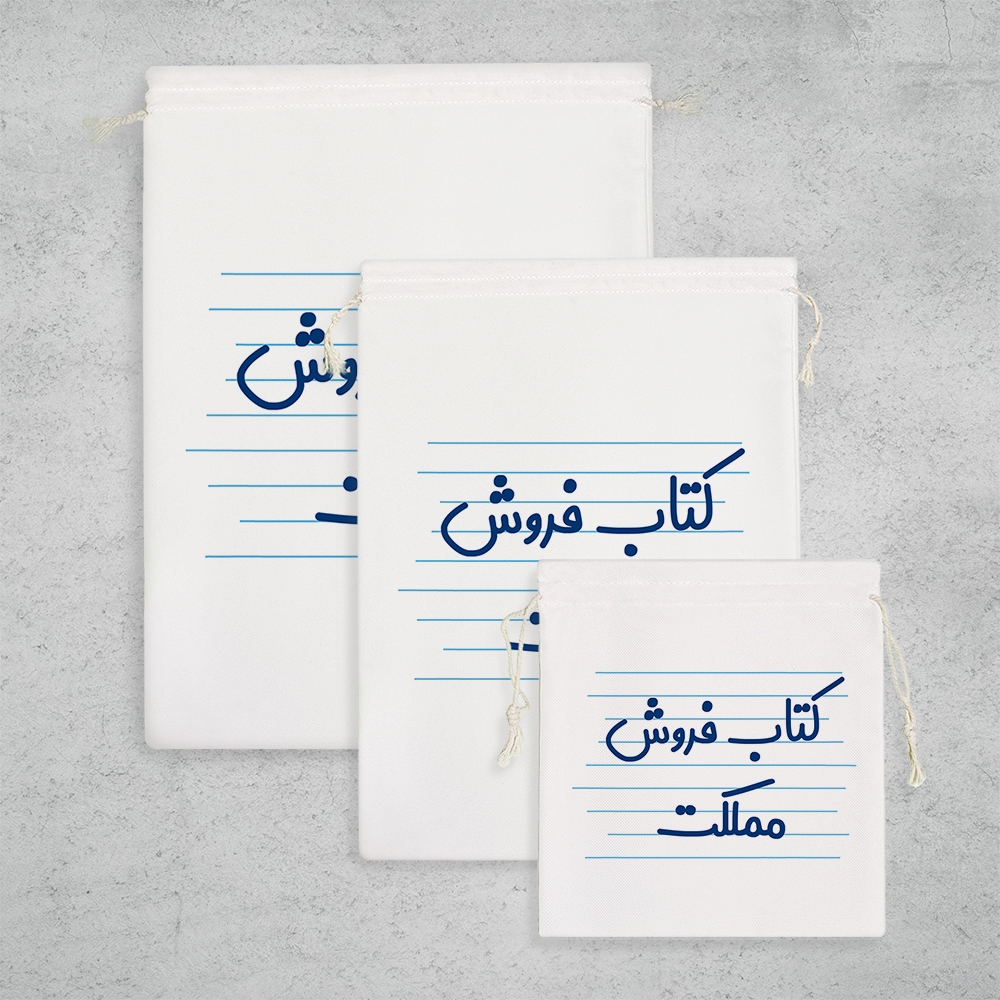 کتاب فروش
کتاب فروش
مملکت